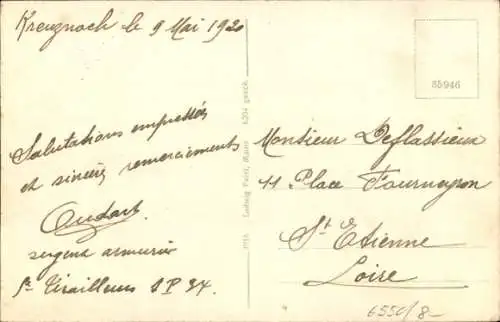 Kreuznach le 9 Mai 1920
Salutations empressées
et sincères remerciements
Oudart
sergent armurier
Tirailleurs S.P 34.
1916 Ludwig Feist, Mainz gesch.
85946
Monsieur Deflassieux
11 Place Fourneyron
St Etienne
Loire
6550/8-